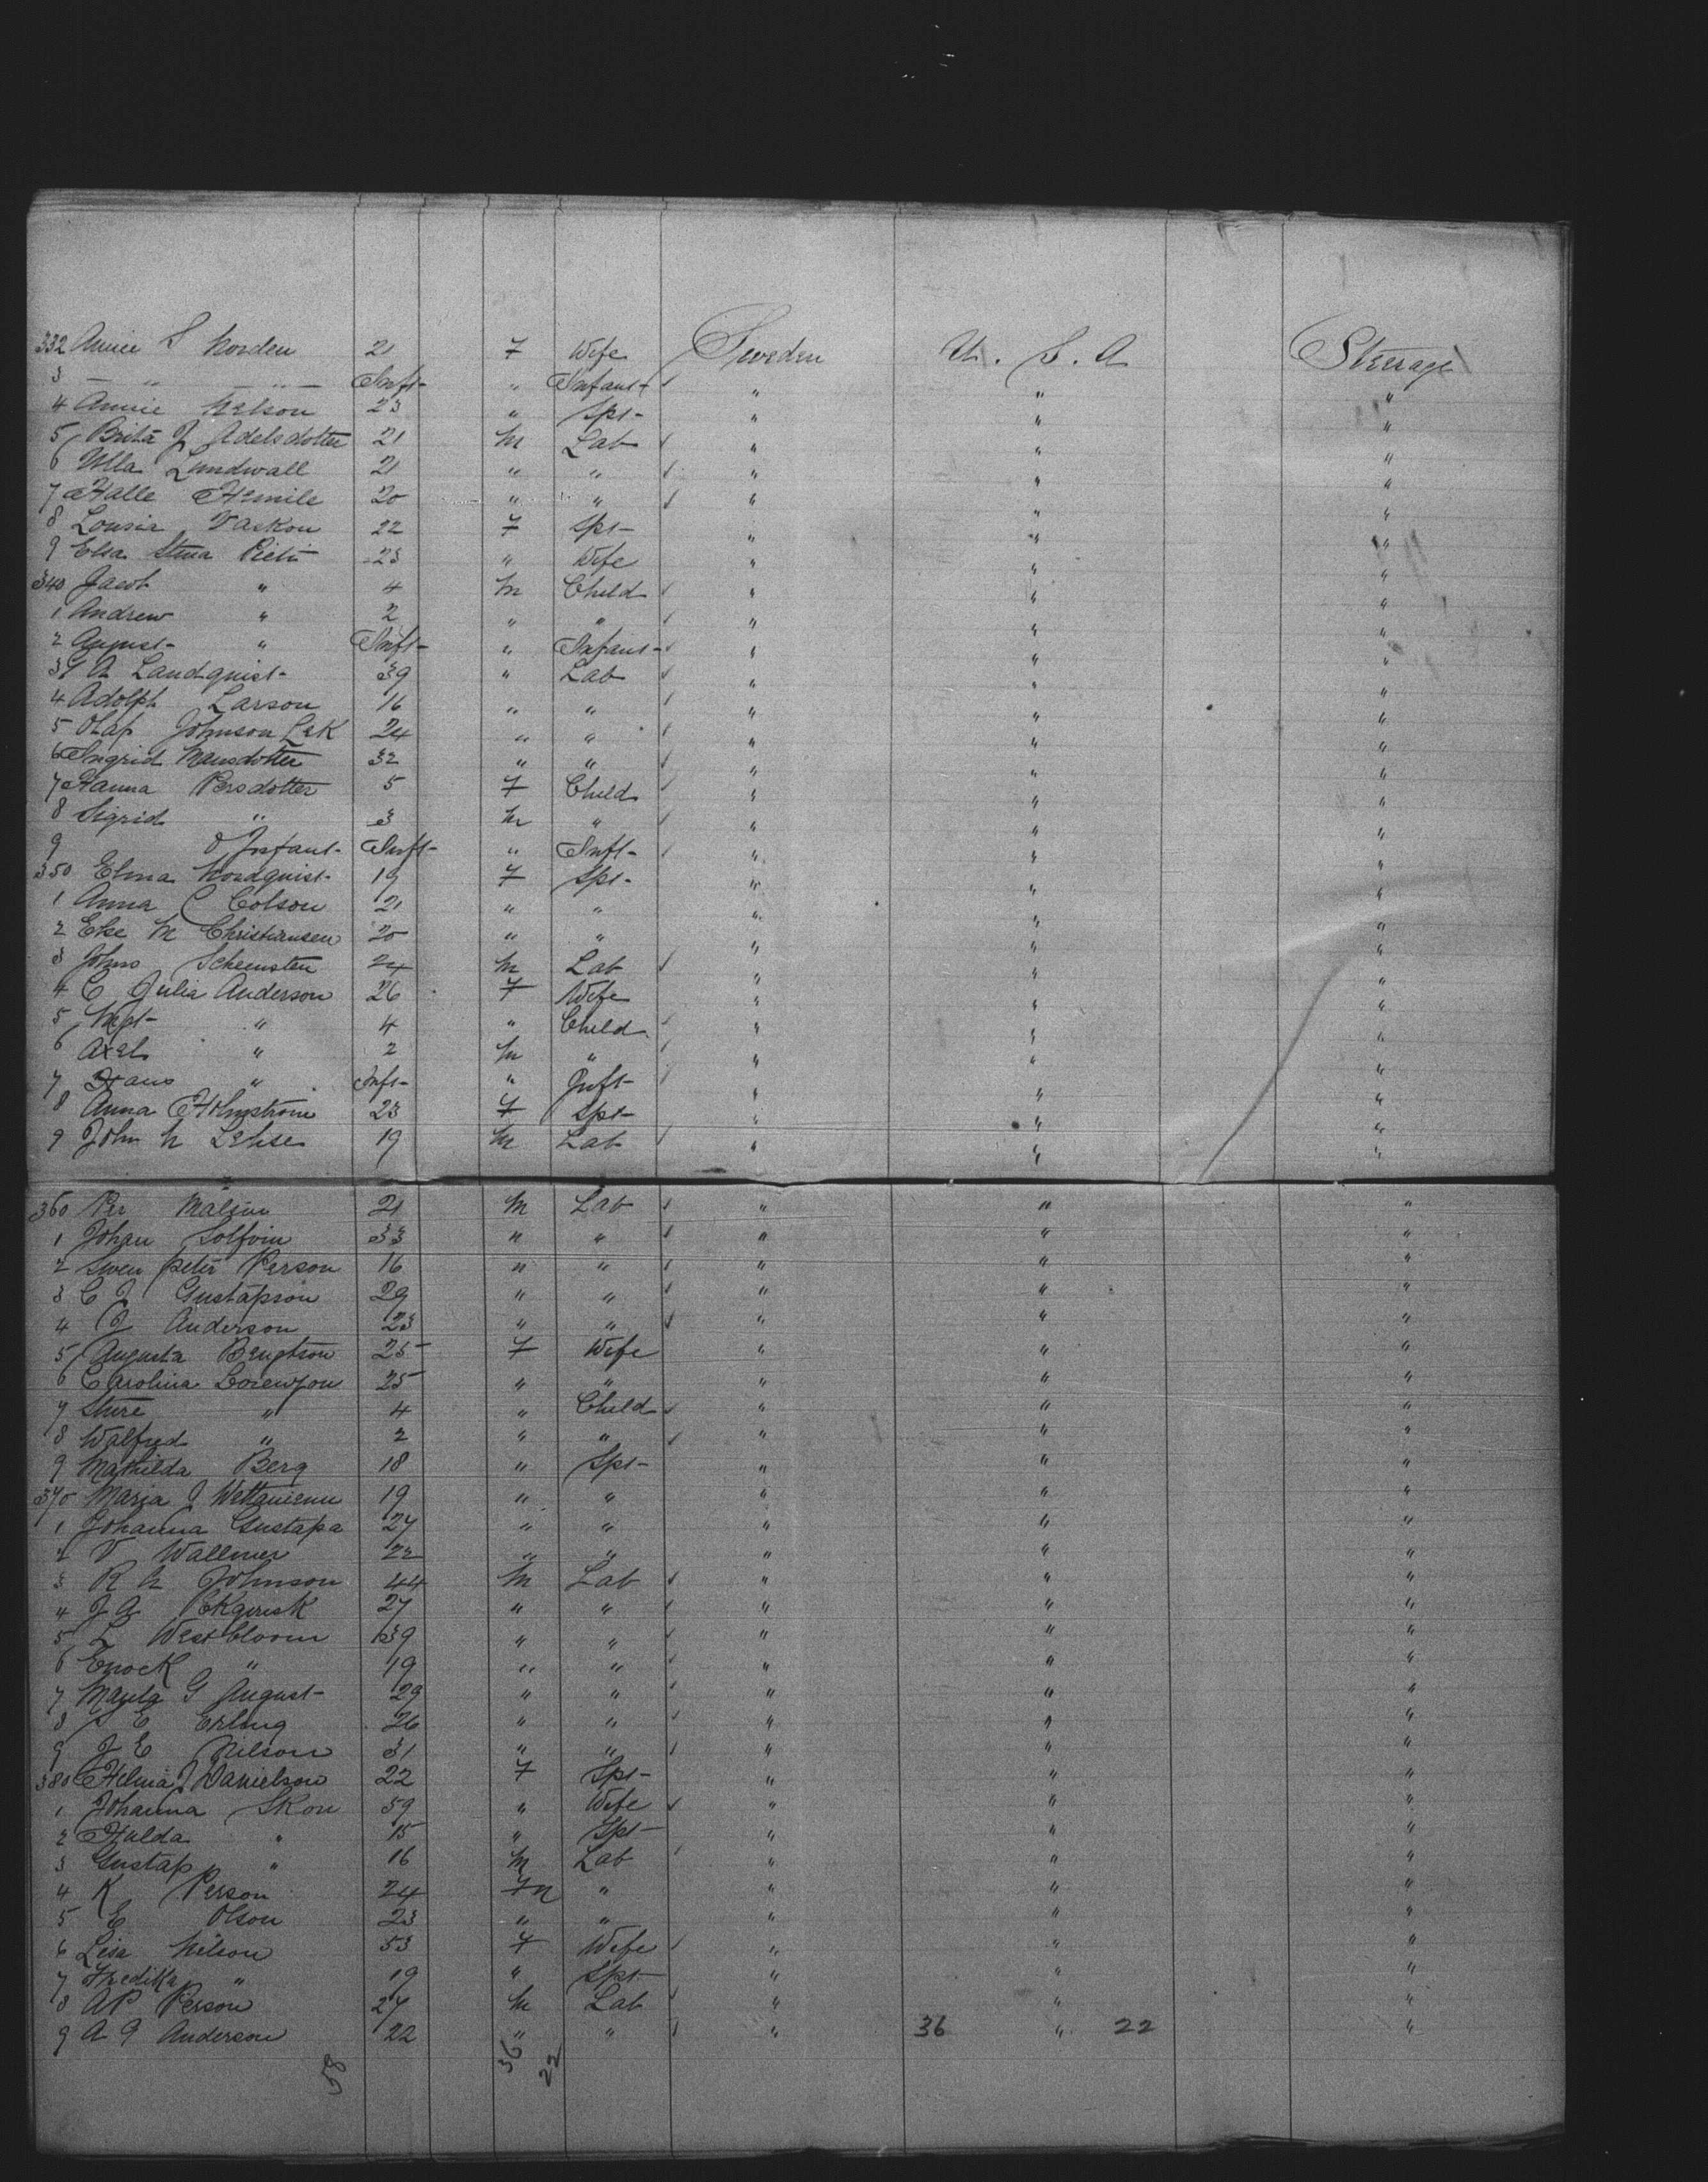 332 Annie S Norden 21 F Wife Sweden U. S. A Steerage
3 — " — " — Inft- " Infant " " "
4 Annie Nelson 23 " Spr- " " "
5 Brita J Adelsdotter 21 M Lab " " "
6 Ulla Lundwall 21 " " " " "
7 Halle Hemile 20 " " " " "
8 Lousia Vaskon 22 F Spr- " " "
9 Elsa Stina Pieti 23 " Wife " " "
340 Jacob " 4 M Child " " "
1 Andrew " 2 " " " " "
2 August- " Inft- " Infant- " " "
3 G A Landquist- 39 " Lab " " "
4 Adolph Larson 16 " " " " "
5 Olaf Johnson Lek 24 " " " " "
6 Ingrid Hansdotter 32 " " " " "
7 Hanna Persdotter 5 F Child " " "
8 Sigrid " 3 M " " " "
9 O Infant- Inft- " Inft- " " "
350 Elma Nordquist- 19 F Spr- " " "
1 Anna C Colson 21 " " " " "
2 Eke M Christiansen 20 " " " " "
3 Johns 24 M Lab " " "
4 C Julia Anderson 26 F Wife " " "
5 Mgt- " 4 " Child " " "
6 Axel " 2 M " " " "
7 Hans " Inft- " Inft- " " "
8 Anna Holmstrom 23 F Spr- " " "
9 John N 19 M Lab " " "
360 Per Malsin 21 M Lab " " "
1 Johan Solfvin 33 " " " " "
2 Swen Peter Person 16 " " " " "
3 C J Gustafson 29 " " " " "
4 J Anderson 23 " " " " "
5 Augusta Bengtson 25 F Wife " " "
6 Carolina 25 " " " " "
7 Sture " 4 " Child " " "
8 Walfred " 2 " " " " "
9 Mathilda Berg 18 " Spr- " " "
370 Maria J 19 " " " " "
1 Johanna Gustafa 27 " " " " "
2 V Wallmer 22 " " " " "
3 R N Johnson 44 M Lab " " "
4 J A 27 " " " " "
5 L Westbloom 39 " " " " "
6 Enock " 19 " " " " "
7 G August- 29 " " " " "
8 E Erling 26 " " " " "
9 J E Nilson 31 " " " " "
380 Helma J Danielson 22 F Spr- " " "
1 Johanna Skon 59 " Wife " " "
2 Hulda " 15 " Spr- " " "
3 Gustaf " 16 M Lab " " "
4 K Person 24 M " " " "
5 E Olson 23 " " " " "
6 Lisa Nilson 53 F Wife " " "
7 Fredika " 19 " Spr- " " "
8 A P Person 27 M Lab " " "
9 A G Anderson 22 " " " 36 " 22 "
58 36 22